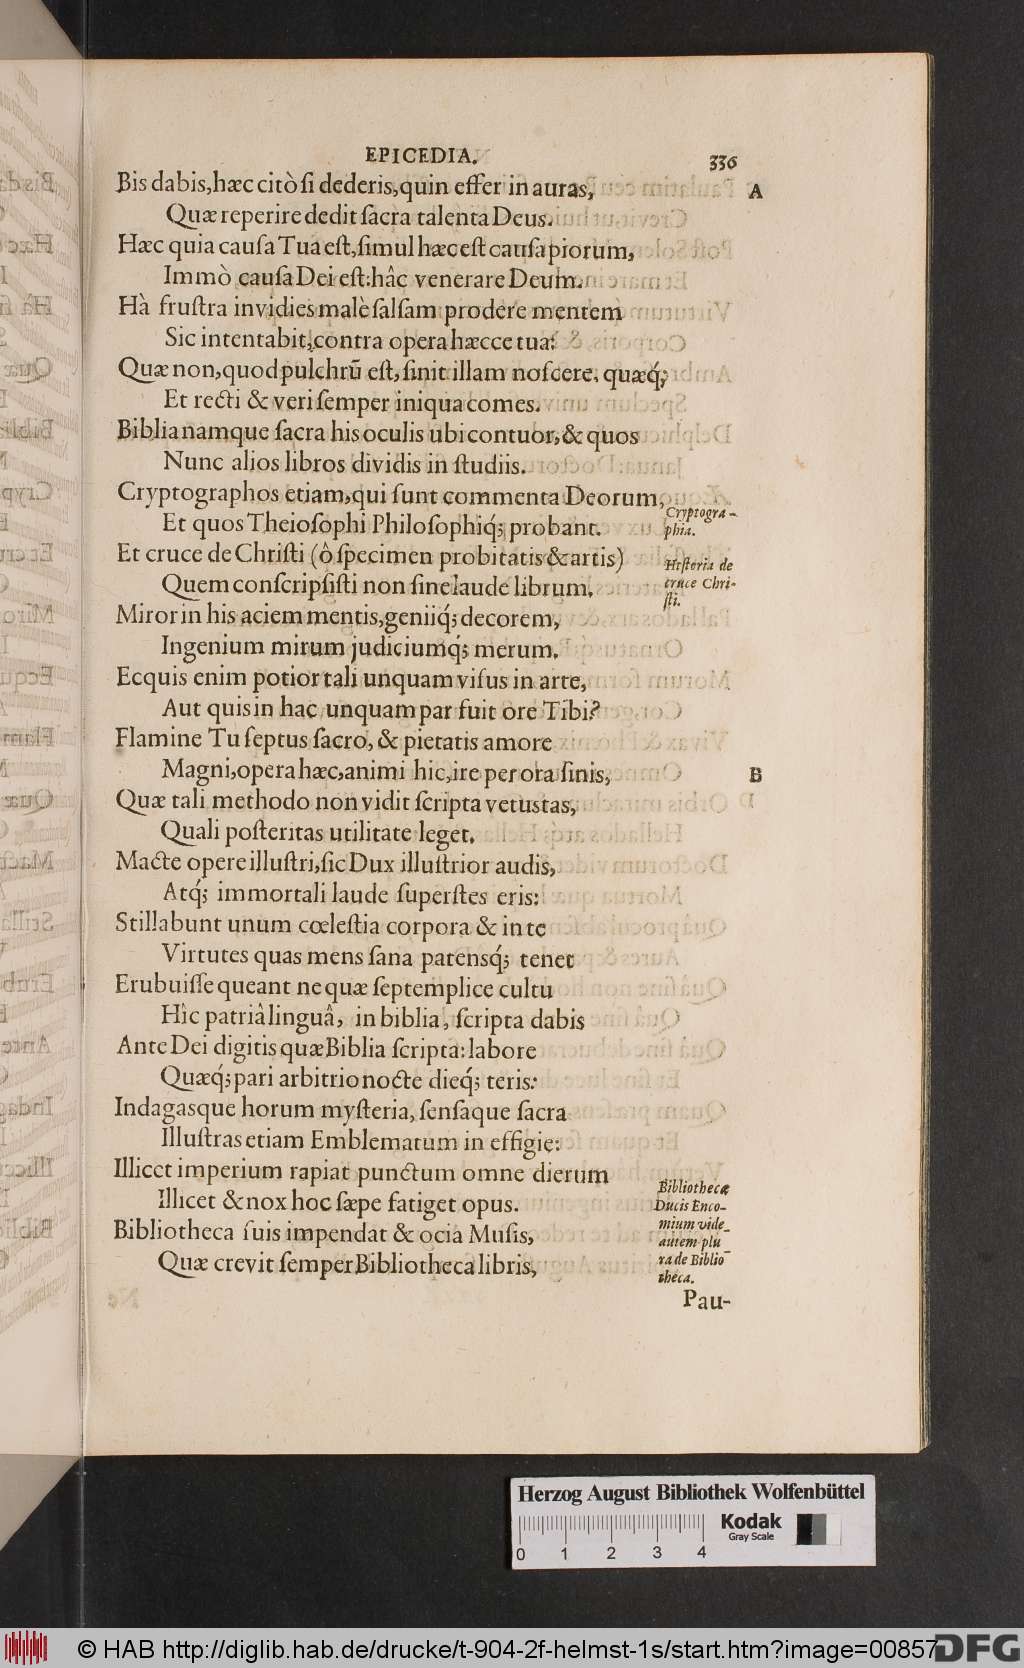 EPICEDIA. 336
Bis dabis, hæc citò ſi dederis, quin effer in auras, A
Quæ reperire dedit ſacra talenta Deus.
Hæc quia cauſa Tua eſt, ſimul hæc eſt cauſa piorum,
Immò cauſa Dei eſt: hâc venerare Deum.
Hà fruſtra invidies malè ſalſam prodere mentem
Sic intentabit, contra opera hæcce tua:
Quæ non, quod pulchrũ eſt, ſinit illam noſcere, quæq́;
Et recti & veri ſemper iniqua comes.
Biblia namque ſacra his oculis ubi contuor, & quos
Nunc alios libros dividis in ſtudiis.
Cryptographos etiam, qui ſunt commenta Deorum,
Cryptogra-
phia.
Et quos Theioſophi Philoſophiq́; probant.
Et cruce de Chriſti (ô ſpecimen probitatis & artis)
Hiſtoria de
cruce Chri-
ſti.
Quem conſcripſiſti non ſine laude librum.
Miror in his aciem mentis, geniiq́; decorem,
Ingenium mirum judiciumq́; merum.
Ecquis enim potior tali unquam viſus in arte,
Aut quis in hac unquam par fuit ore Tibi?
Flamine Tu ſeptus ſacro, & pietatis amore
Magni, opera hæc, animi hic, ire per ora ſinis, B
Quæ tali methodo non vidit ſcripta vetuſtas,
Quali poſteritas utilitate leget.
Macte opere illuſtri, ſic Dux illuſtrior audis,
Atq́; immortali laude ſuperſtes eris:
Stillabunt unum cœleſtia corpora & in te
Virtutes quas mens ſana patensq́; tenet
Erubuiſſe queant ne quæ ſeptemplice cultu
Hîc patriâ linguâ, in biblia, ſcripta dabis
Ante Dei digitis quæ Biblia ſcripta: labore
Quæq́; pari arbitrio nocte dieq́; teris:
Indagasque horum myſteria, ſenſaque ſacra
Illuſtras etiam Emblematum in effigie:
Illicet imperium rapiat punctum omne dierum
Illicet & nox hoc ſæpe fatiget opus.
Bibliotheca ſuis impendat & ocia Muſis,
Quæ crevit ſemper Bibliotheca libris,
Bibliothecæ
Ducis Enco-
mium vide
autem plu-
ra de Biblio
theca.
Pau-
Herzog August Bibliothek Wolfenbüttel
Kodak
Gray Scale
0 1 2 3 4
© HAB http://diglib.hab.de/drucke/t-904-2f-helmst-1s/start.htm?image=00857
DFG